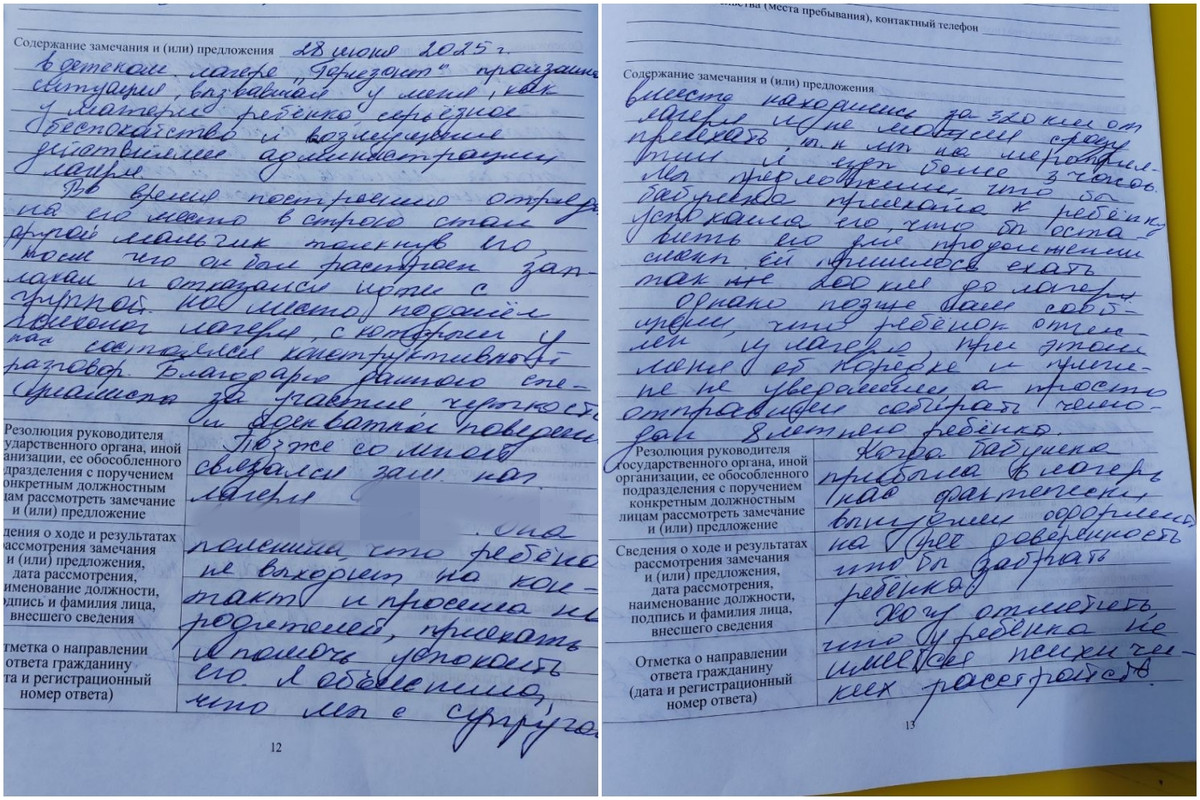 Содержание замечания и (или) предложения 28 июня 2025 г.
в детском лагере "Горизонт" произошла
ситуация, вызвавшая у меня, как
у матери ребёнка серьёзное
беспокойство и возмущение
действиями администрации
лагеря.
Во время построения отряда
на его место в строю стал
другой мальчик толкнув его,
после чего он был расстроен зап-
лакал и отказался идти с
группой. На место подошёл
психолог лагеря, с которым у
нас состоялся конструктивный
разговор. Благодарю данного спе-
циалиста за участие, чуткость
и адекватное поведение
Резолюция руководителя
ударственного органа, иной
анизации, ее обособленного
одразделения с поручением
онкретным должностным
цам рассмотреть замечание
и (или) предложение
Позже со мной
связался зам. нач.
лагеря
. она
пояснила что ребёно
не выходит на кон-
такт и просила на
родителей, приехать
и помочь успокоить
его. Я объяснила,
что мы с супруго
дения о ходе и результатах
рассмотрения замечания
и (или) предложения,
дата рассмотрения,
именование должности,
одпись и фамилия лица,
внесшего сведения
тметка о направлении
ответа гражданину
та и регистрационный
номер ответа)
12
ьства (места пребывания), контактный телефон
Содержание замечания и (или) предложения
вместе находились за 320 км от
лагеря и не можем сразу
приехать, т.к мы на мероприя-
тии и езды более 3 часов.
Мы предложили что бы
бабушка приехала к ребёнку
успокоила его, что бы оста-
вить его для продолжения
смены, ей пришлось ехать
так же 200 км до лагеря
однако позже нам сооб-
щили, что ребёнок отчис-
лен из лагеря, при этом
меня об порядке и причи-
не не уведомили а просто
отправили собирать чемо-
дан 8 летнего ребёнка.
Резолюция руководителя
государственного органа, иной
организации, ее обособленного
подразделения с поручением
конкретным должностным
лицам рассмотреть замечание
и (или) предложение
Когда бабушка
прибыла в лагерь
нас фактически
вынудили оформлять
на неё доверенность
что бы забрать
ребёнка.
Хочу отметить,
что у ребёнка не
имеется психиче-
ких расстройств.
Сведения о ходе и результатах
рассмотрения замечания
и (или) предложения,
дата рассмотрения,
наименование должности,
подпись и фамилия лица,
внесшего сведения
Отметка о направлении
ответа гражданину
(дата и регистрационный
номер ответа)
13